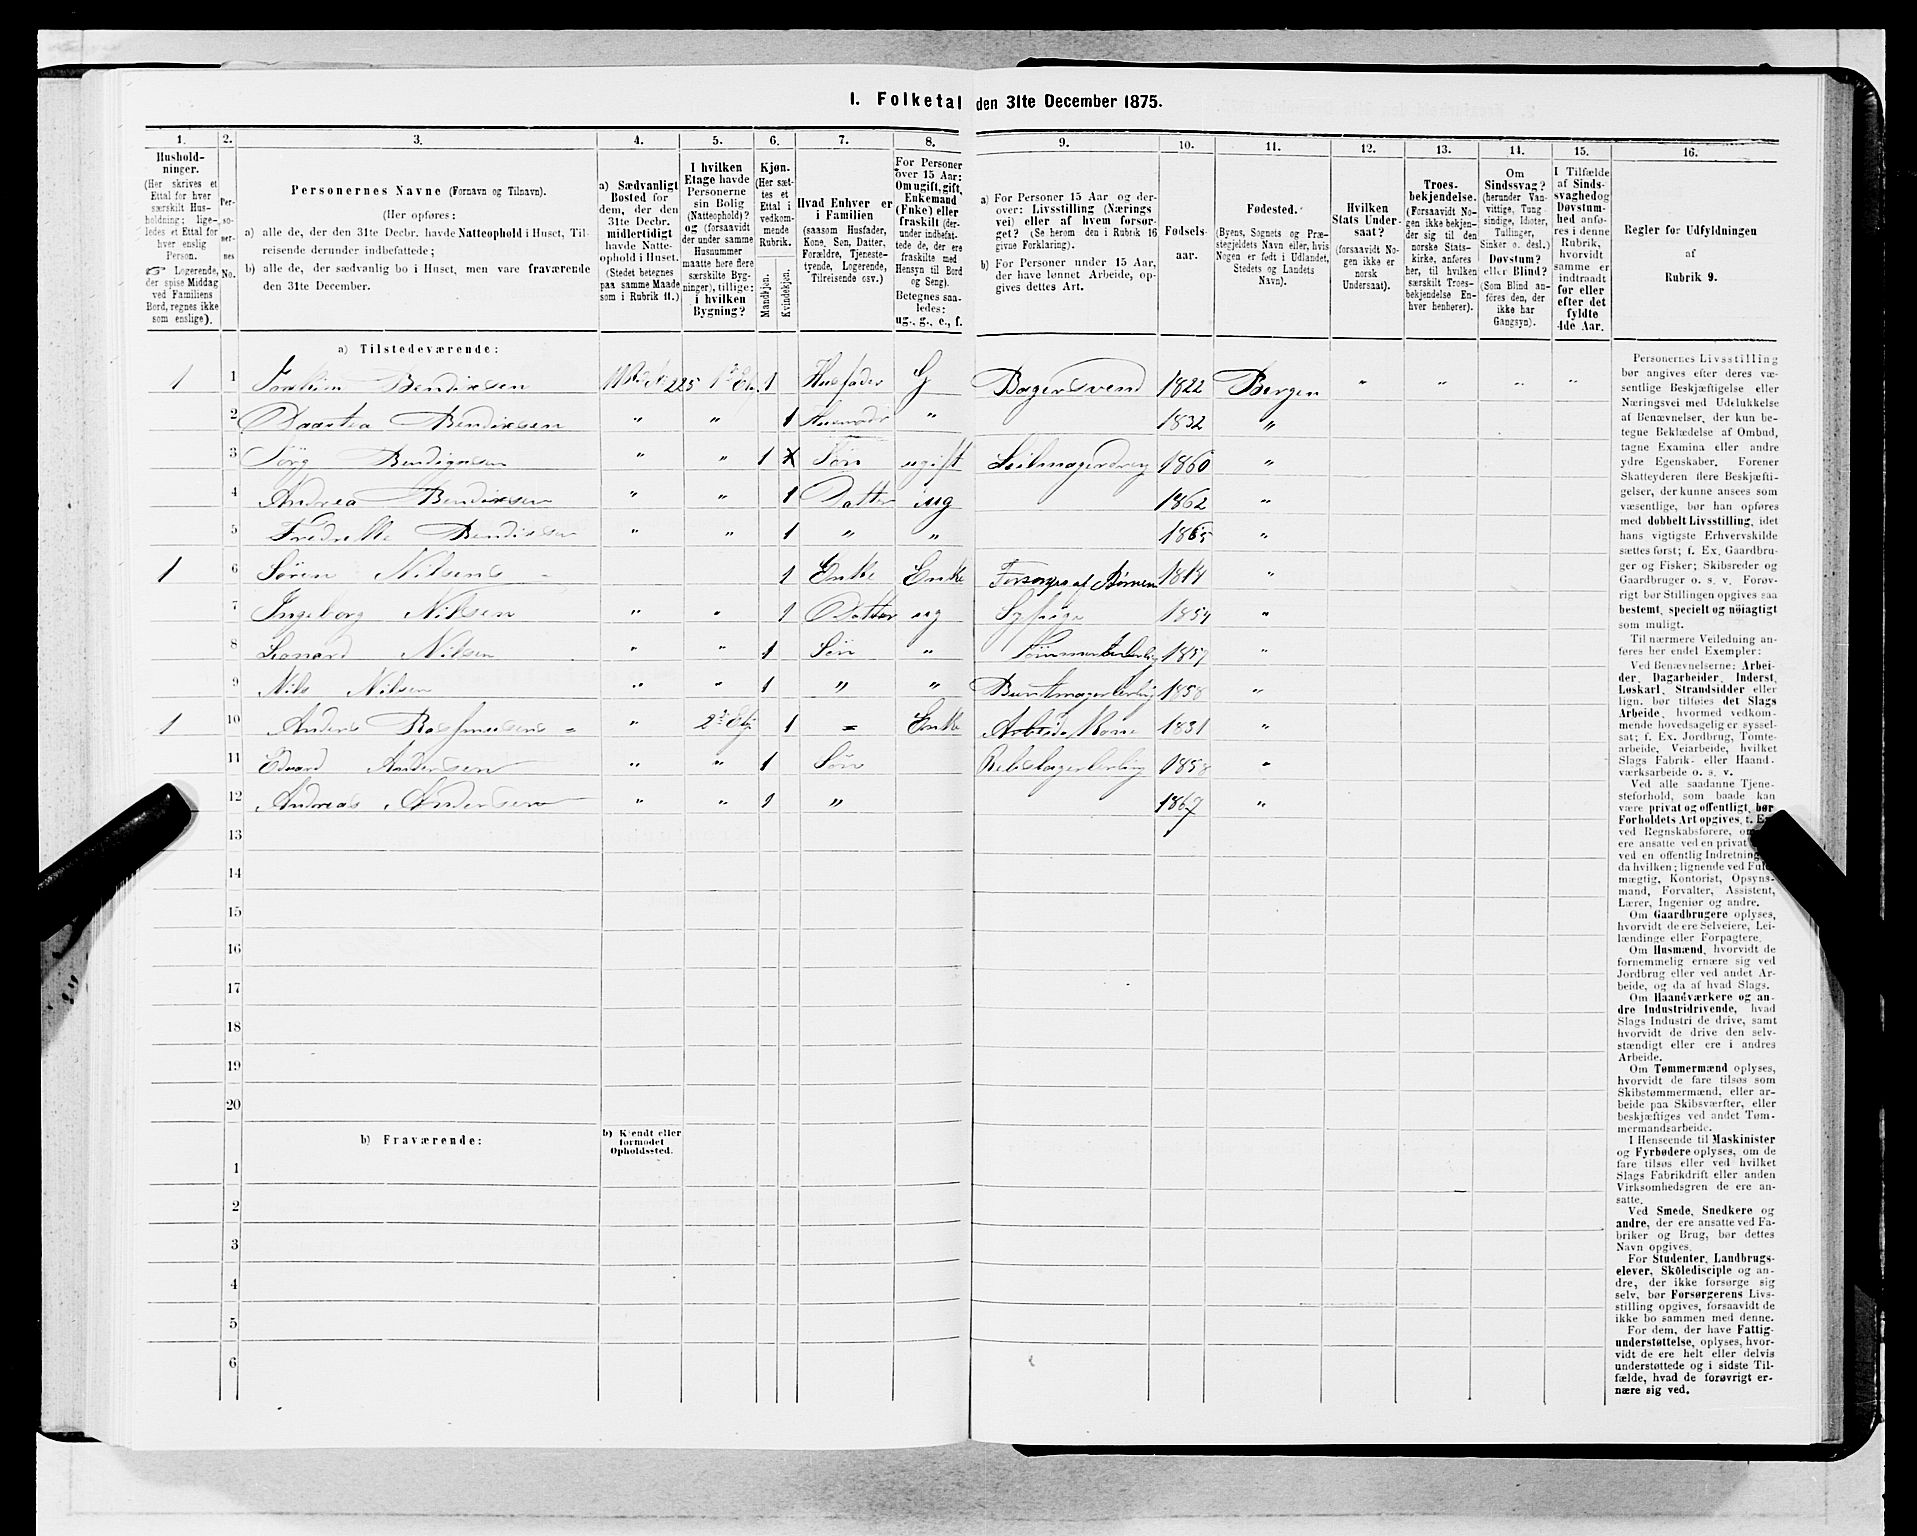 1. Folketal den 31te December 1875.
1.
Hushold-
ninger.
(Her skrives et
Ettal for hver
særskilt Hus-
holdning; lige-
ledes et Ettal for
hver enslig
Person.
☞ Logerende,
der spise Middag
ved Familiens
Bord, regnes ikke
som enslige).
2.
Per-
so-
ner-
nes
No.
3.
Personernes Navne (Fornavn og Tilnavn).
(Her opføres:
a) alle de, der den 31te Decbr. havde Natteophold i Huset, Til-
reisende derunder indbefattede;
b) alle de, der sædvanlig bo i Huset, men vare fraværende
den 31te December.
4.
a) Sædvanligt
Bosted for
dem, der den
31te Decbr.
midlertidigt
havde Natte-
ophold i Huset.
(Stedet betegnes
paa samme Maade
som i Rubrik 11.)
5.
I hvilken
Etage havde
Personerne
sin Bolig
(Natteophold)?
og (forsaavidt
der under samme
Husnummer
maatte høre flere
særskilte Byg-
ninger), tillige:
i hvilken
Bygning?
6.
Kjøn.
(Her sæt-
tes et
Ettal i
vedkom-
mende
Rubrik.
Mandkjøn.
Kvindekjøn.
7.
Hvad Enhver er
i Familien
(saasom Husfader,
Kone, Søn, Datter,
Forældre, Tjeneste-
tyende, Logerende,
Tilreisende osv.)
8.
For Personer
over 15 Aar:
Om ugift, gift,
Enkemand
(Enke) eller
fraskilt (der-
under indbefat-
tede de, der ere
fraskilte med
Hensyn til Bord
og Seng).
Betegnes saa-
ledes:
ug., g., e., f.
9.
a) For Personer 15 Aar og der-
over: Livsstilling (Nærings
vei) eller af hvem forsør-
get? (Se herom den i Rubrik 16
givne Forklaring).
b) For Personer under 15 Aar,
der have lønnet Arbeide, op-
gives dettes Art.
10.
Fødsels-
aar.
11.
Fødested.
(Byens, Sognets og Præ-
stegjeldets Navn eller, hvis
Nogen er født i Udlandet,
Stedets og Landets
Navn).
12.
Hvilken
Stats Under-
saat?
(forsaavidt No-
gen ikke er
norsk
Undersaat).
13.
Troes-
bekjendelse.
(Forsaavidt No-
gen ikke bekjen-
der sig til den
norske Stats-
kirke, anføres
her, til hvilken
særskilt Troes-
bekjendelse En-
hver henhører).
14.
Om
Sindssvag?
(herunder Van-
vittige, Tung-
sindige, Idioter,
Tullinger,
Sinker o. desl.)
Døvstum?
eller Blind?
(Som Blind an-
føres den, der
ikke har
Gangsyn).
15.
I Tilfælde
af Sinds-
svaghed og
Døvstum-
hed anfø-
res i denne
Rubrik,
hvorvidt
samme er
indtraadt
før eller
efter det
fyldte
4de Aar.
16.
Regler for Udfyldningen
af
Rubrik 9.
a) Tilstedeværende:
1 1 Bendixsen 225 1 Husfader G Bagersvend 1822 Bergen " " " "
2 Bendixsen " " 1 " 1832 "
3 " " 1 Søn ugift 1860 "
4 Andrea Bendixsen " " 1 Datter ug 1862 "
5 Bendixsen " " 1 " " 1865 "
1 6 Søren Nilsens 1 Enke Enke Børnene "
7 Ingeborg Nilsen " " 1 Datter ug 1854 "
8 Leonard Nilsen " " 1 Søn " 1857 "
9 Nils Nilsen " " 1 " " Buntmagerlerling 1858 "
1 10 Anders Rasmusens " 2 1 Enke Kone 1831 "
11 Edvard Andersen " " 1 Søn Rebslagerlerling 1858 "
12 Andreas Andersen " " 1 " 1867 "
13
14
15
16
17
18
19
20
b) Fraværende:
b) Kjendt eller
formodet
Opholdssted.
1
2
3
4
5
6
Personernes Livsstilling
bør angives efter deres væ-
sentlige Beskjæftigelse eller
Næringsvei med Udelukkelse
af Benævnelser, der kun be-
tegne Beklædelse af Ombud,
tagne Examina eller andre
ydre Egenskaber. Forener
Skatteyderen flere Beskjæfti-
gelser, der kunne ansees som
væsentlige, bør han opføres
med dobbelt Livsstilling, idet
hans vigtigste Erhvervskilde
sættes først; f. Ex. Gaardbru-
ger og Fisker; Skibsreder og
Gaardbruger o. s. v. Forøv-
rigt bør Stillingen opgives saa
bestemt, specielt og nøiagtigt
som muligt.
Til nærmere Veiledning an-
føres her endel Exempler:
Ved Benævnelserne: Arbei-
der, Dagarbeider, Inderst,
Løskarl, Strandsidder eller
lign. bør tilføies det Slags
Arbeide, hvormed vedkom-
mende hovedsagelig er syssel-
sat; f. Ex. Jordbrug, Tomte-
arbeide, Veiarbeide, hvilket
Slags Fabrik- eller Haand-
værksarbeide o. s. v.
Ved alle saadanne Tjene-
steforhold, som baade kan
være privat og offentligt, bør
Forholdets Art opgives, f. Ex.
ved Regnskabsførere, om
ere ansatte ved en privat
ved en offentlig Indretning
da hvilken; lignende ved Fuld-
mægtig, Kontorist, Opsyns-
mand, Forvalter, Assistent,
Lærer, Ingeniør og andre.
Om Gaardbrugere oplyses,
hvorvidt de ere Selveiere, Lei-
lændinge eller Forpagtere.
Om Husmænd, hvorvidt de
fornemmelig ernære sig ved
Jordbrug eller ved andet Ar-
beide, og da af hvad Slags.
Om Haandværkere og an-
dre Industridrivende, hvad
Slags Industri de drive, samt
hvorvidt de drive den selv-
stændigt eller ere i andres
Arbeide.
Om Tømmermænd oplyses,
hvorvidt de fare tilsøs som
Skibstømmermænd, eller ar-
beide paa Skibsværfter, eller
beskjæftiges ved andet Tøm-
mermandsarbeide.
I Henseende til Maskinister
og Fyrbødere oplyses, om de
fare tilsøs eller ved hvilket
Slags Fabrikdrift eller anden
Virksomhedsgren de ere an-
satte.
Ved Smede, Snedkere og
andre, der ere ansatte ved Fa-
briker og Brug, bør dettes
Navn opgives.
For Studenter, Landbrugs-
elever, Skoledisciple og an-
dre, der ikke forsørge sig
selv, bør Forsørgerens Livs-
stilling opgives, forsaavidt de
ikke bo sammen med denne.
For dem, der have Fattig-
understøttelse, oplyses, hvor-
vidt de ere helt eller delvis
understøttede og i sidste Til-
fælde, hvad de forøvrigt er-
nære sig ved.